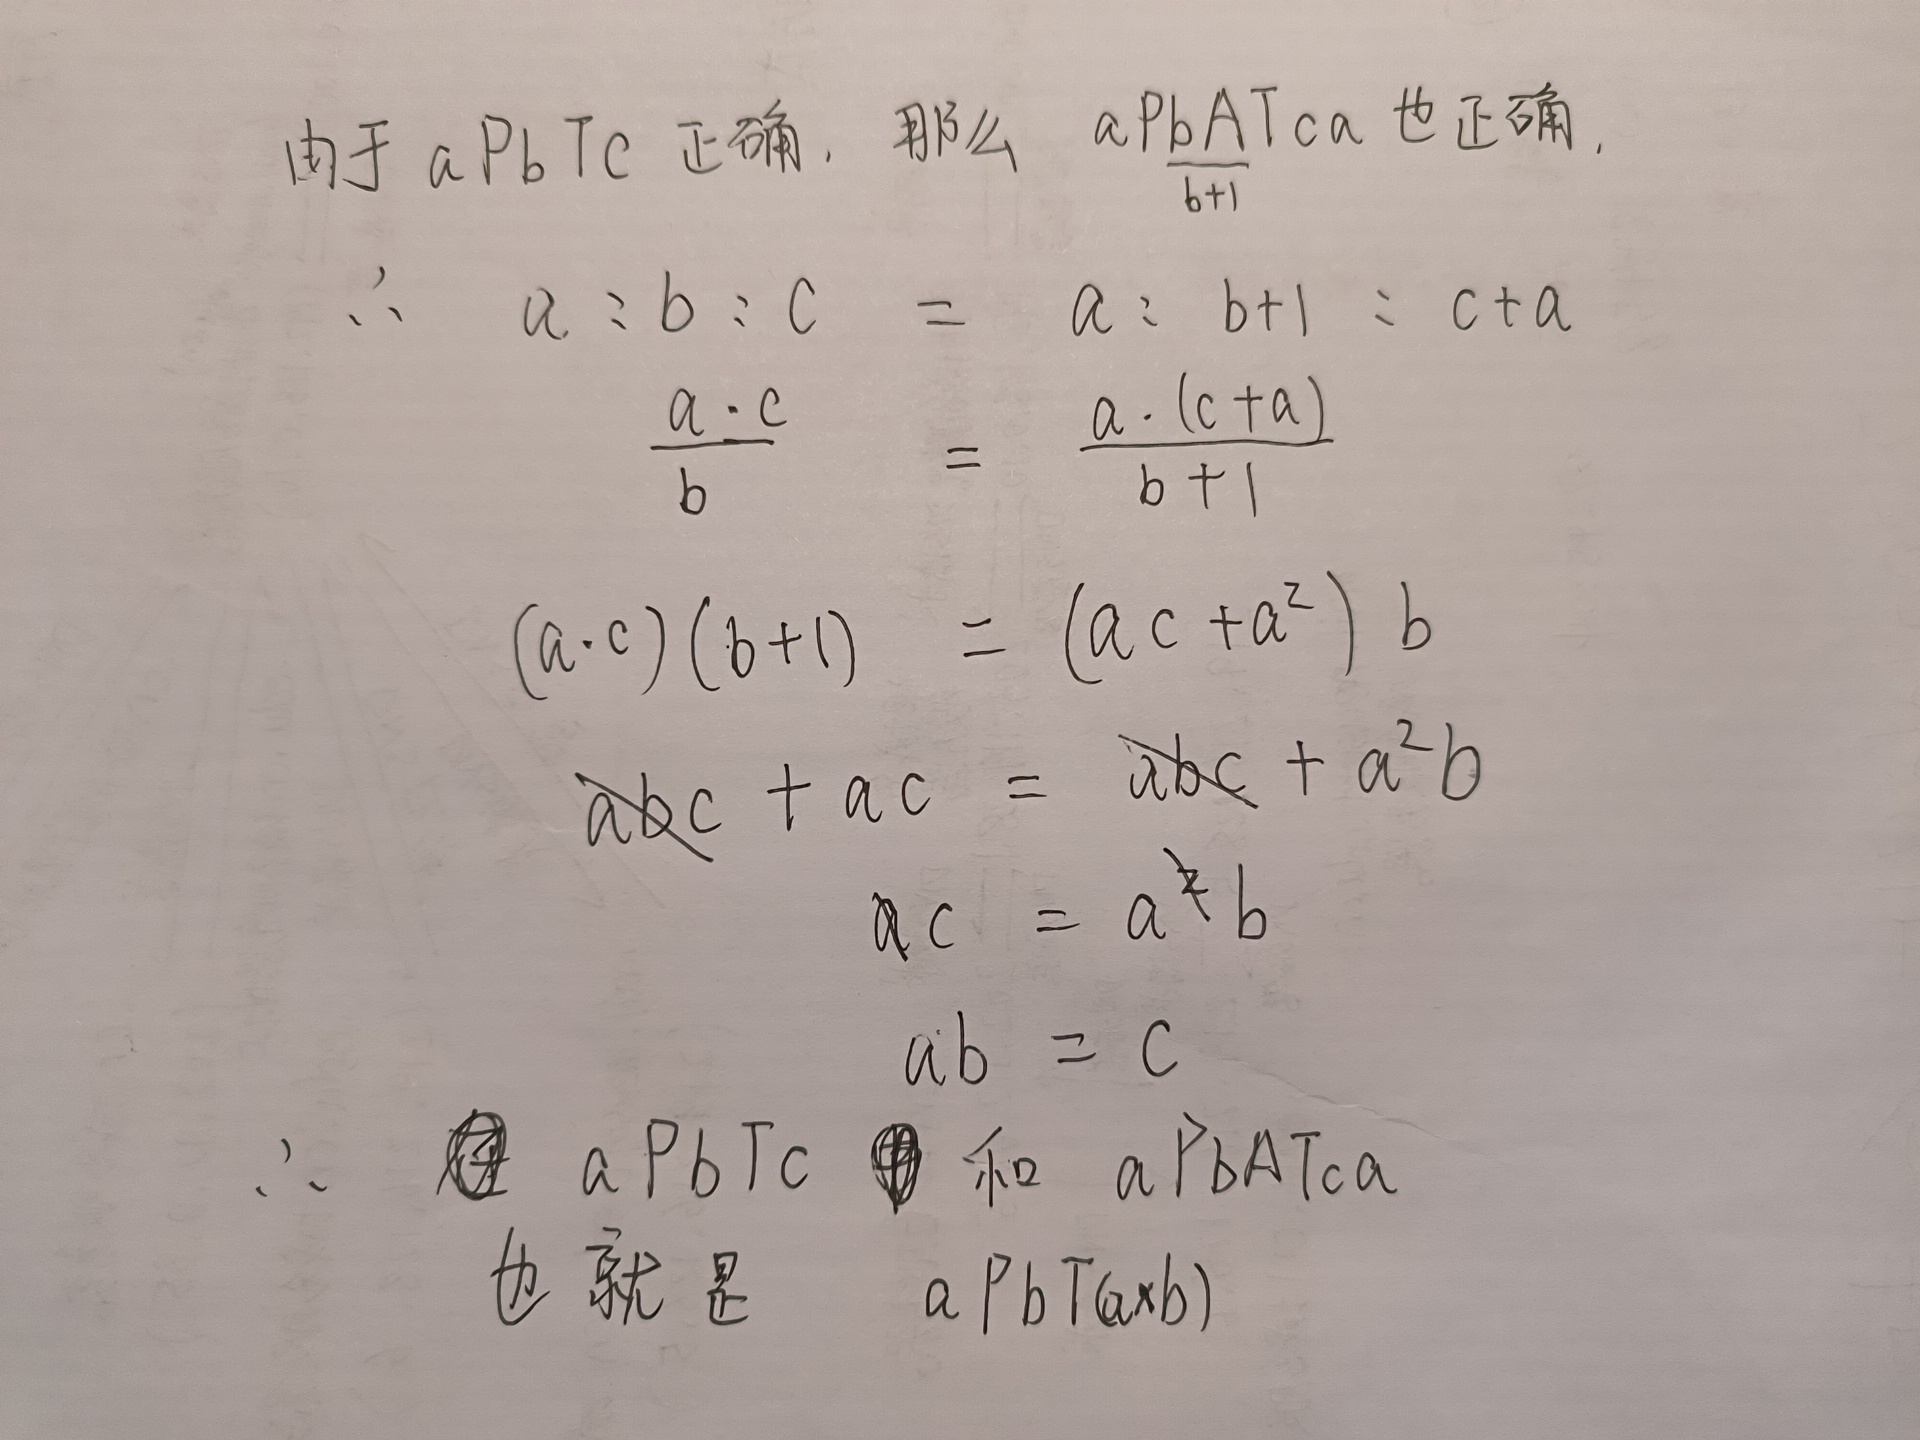 由于 aPbTc 正确, 那么 aPbATca 也正确.
b+1
∴ a : b : c = a : b+1 : c+a
a·c / b = a·(c+a) / b+1
(a·c)(b+1) = (ac+a²) b
abc + ac = abc + a²b
ac = a²b
ab = c
∴ aPbTc 和 aPbATca
也就是 aPbT(a×b)